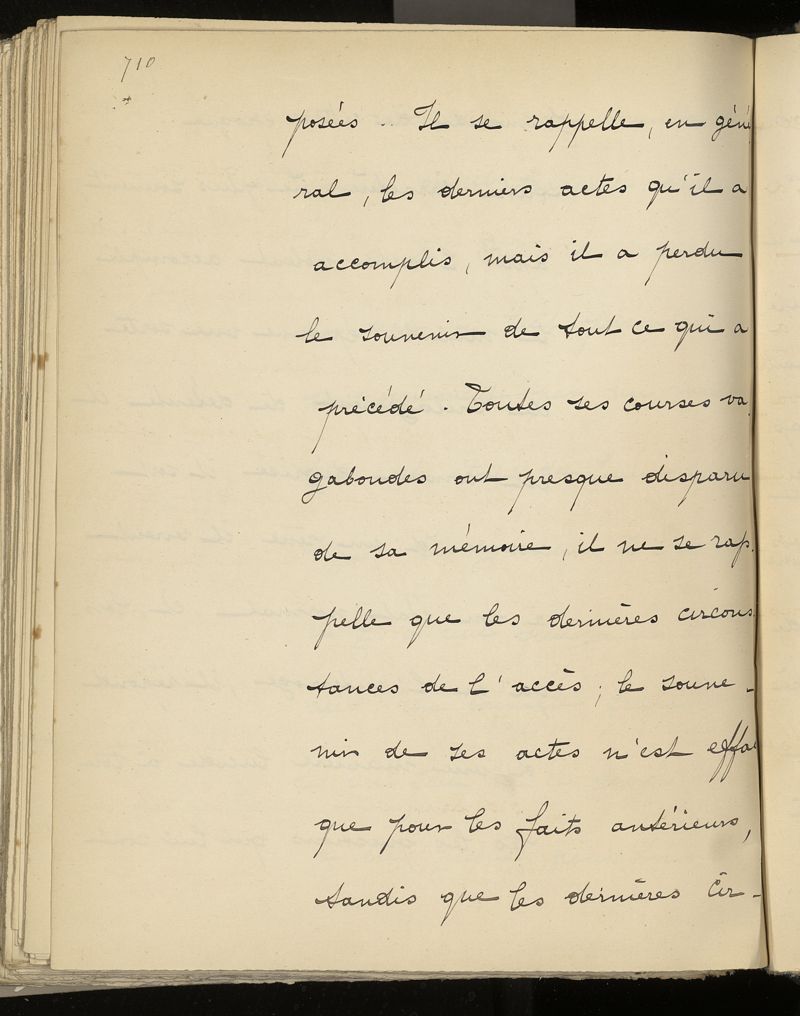 710
posées. Il se rappelle, en géné
ral, les derniers actes qu'il a
accomplis, mais il a perdu
le souvenir de tout ce qui a
précédé. Toutes ses courses va
gabondes ont presque disparu
de sa mémoire, il ne se rap
pelle que les dernières circons
tances de l'accès; le souve-
nir de ses actes n'est effa
que pour les faits antérieurs,
tandis que les dernières cir-